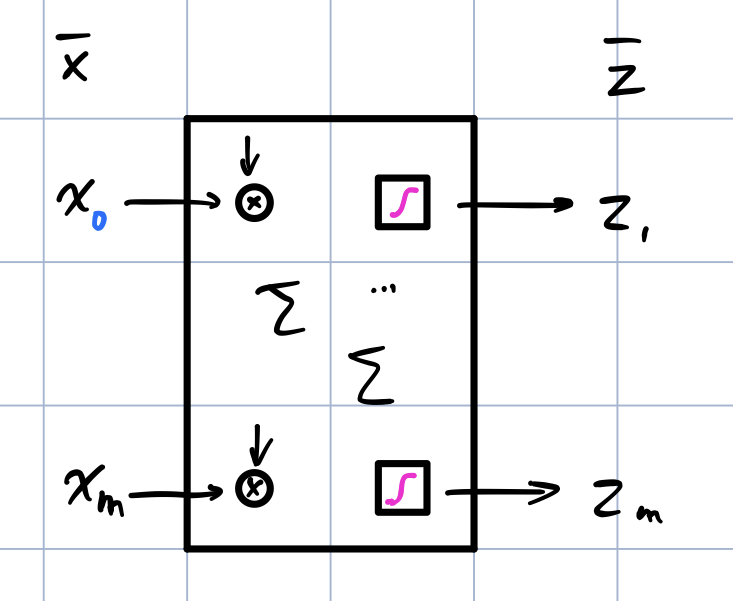 x̅ z̅
x₀ ⊗ ∫ z₁
Σ ...
Σ
xₘ ⊗ ∫ zₘ